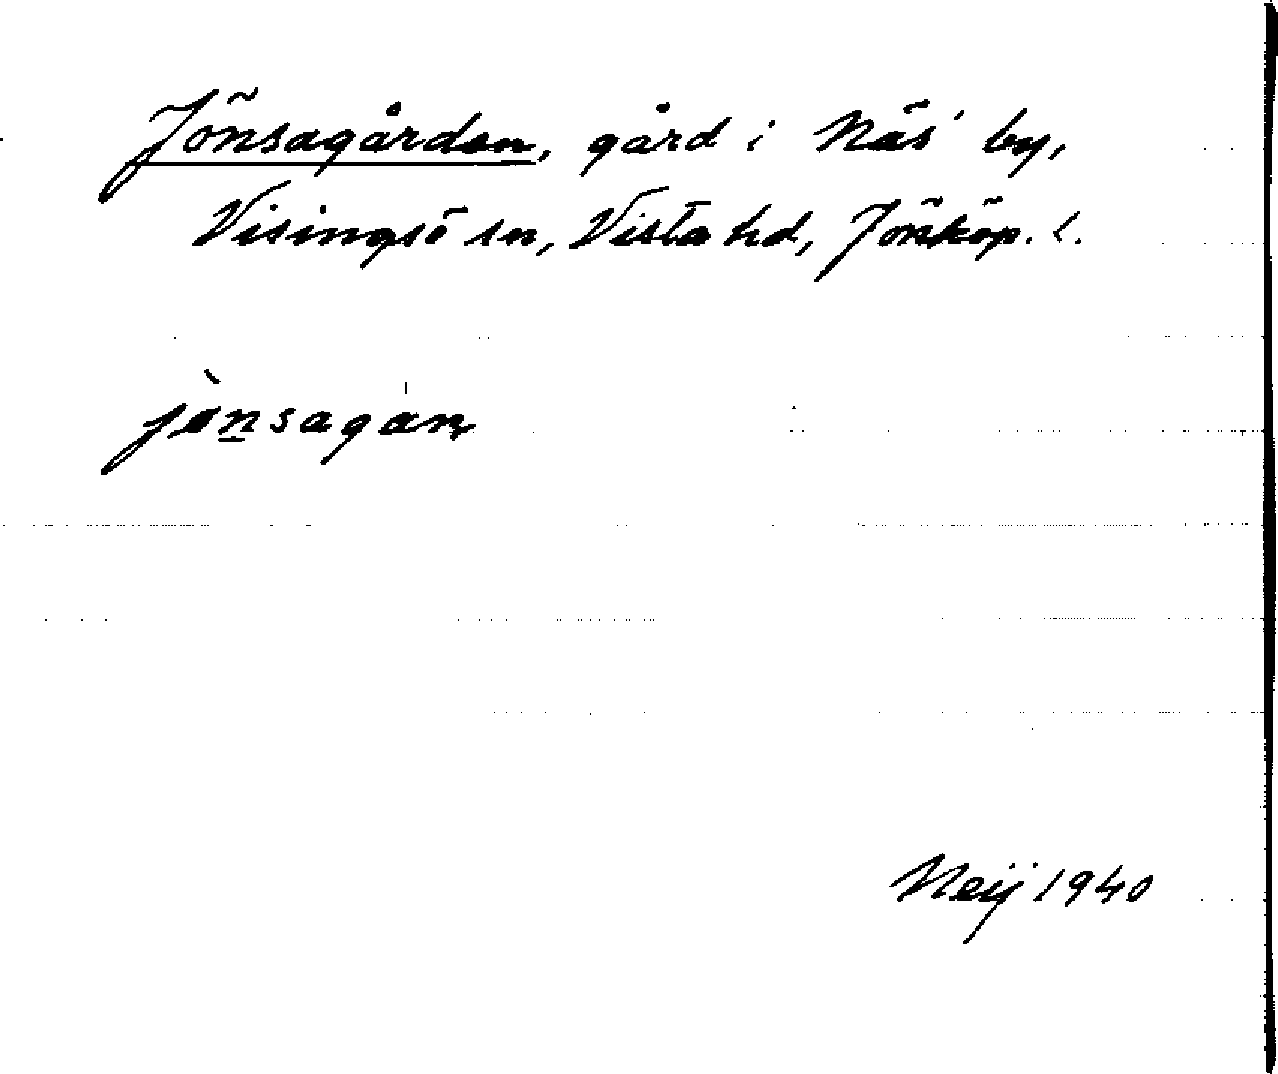 Jönsagården, gård i Näs by,
Visingsö sn, Vista hd, Jönköp. l.
jònsagan
Neij 1940